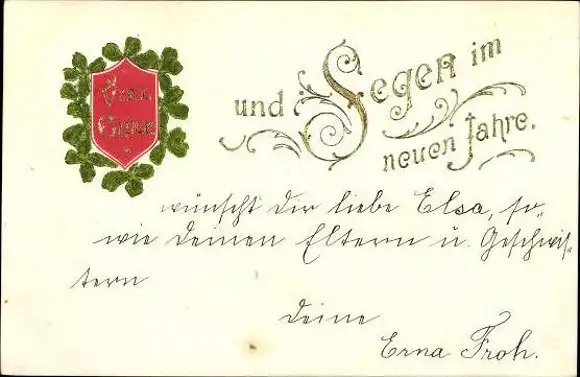 Viel
Glück
und Segen im
neuen Jahre.
wünscht dir liebe Elsa, so„
wie deinen Eltern u. Geschwis„
tern
deine
Erna Froh.